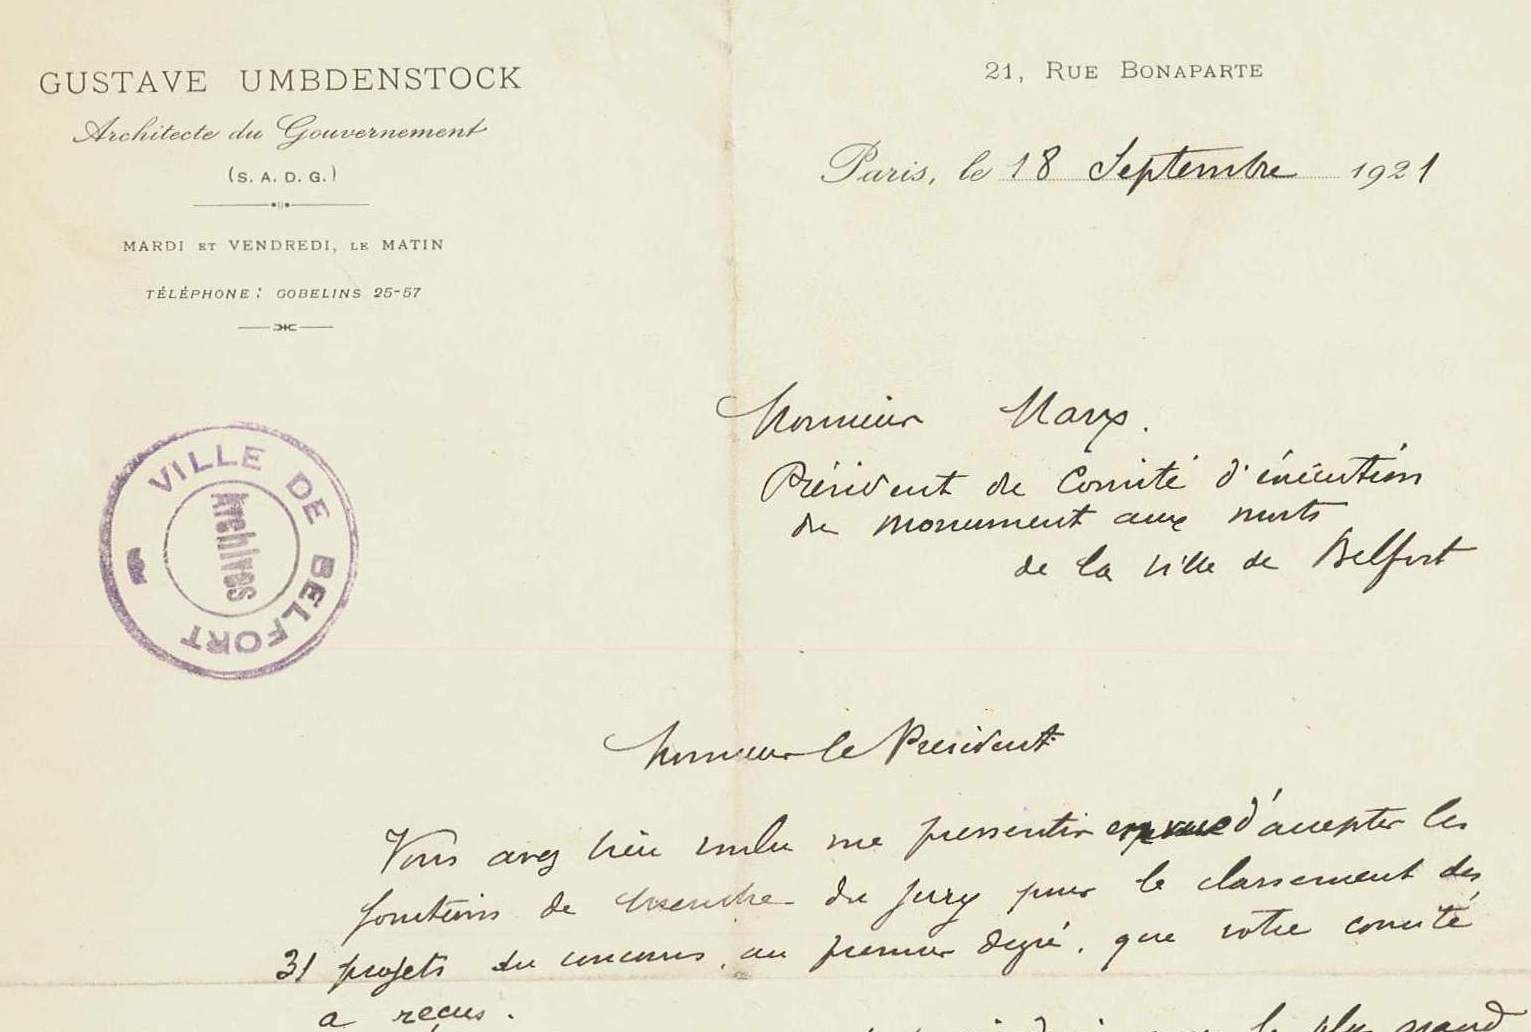 GUSTAVE UMBDENSTOCK
Architecte du Gouvernement
(S. A. D. G.)
MARDI ET VENDREDI, LE MATIN
TÉLÉPHONE : GOBELINS 25-57
21, RUE BONAPARTE
Paris, le 18 Septembre 1921
VILLE DE BELFORT
Archives
Monsieur Marx.
Président du Comité d'exécution
du monument aux morts
de la ville de Belfort
Monsieur le Président
Vous avez bien voulu me pressentir en vue d'accepter les
fonctions de membre du Jury pour le classement des
31 projets du concours, au premier degré, que votre comité
a reçus.
le plus grand